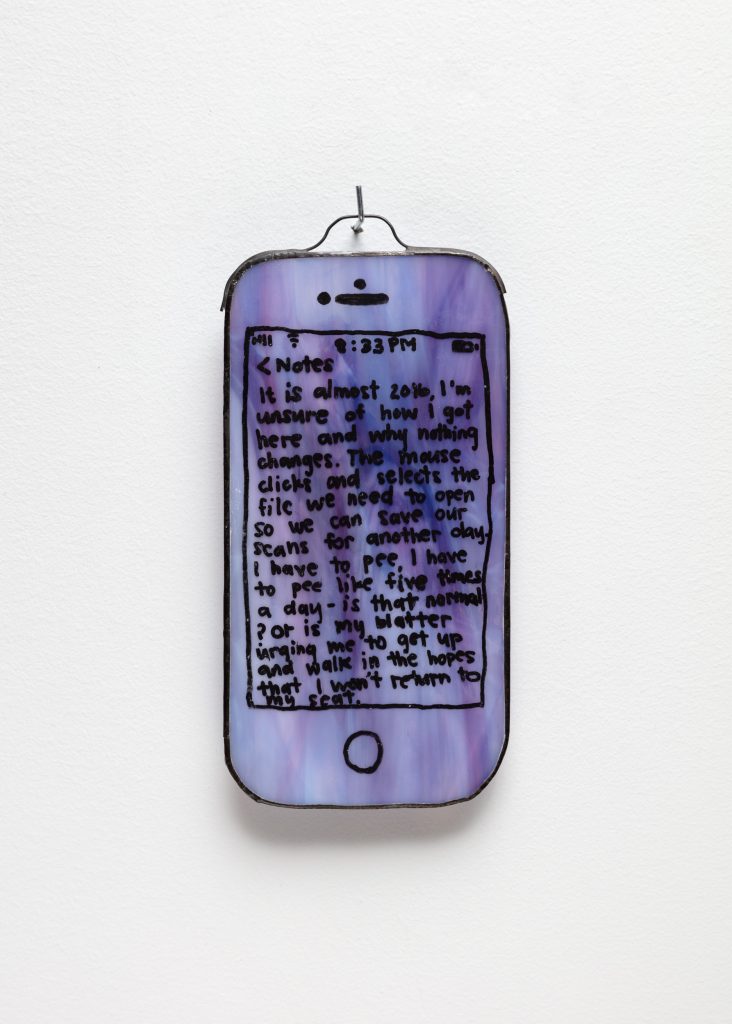 8:33 PM
< Notes
It is almost 2016, I'm
unsure of how i got
here and why nothing
changes. The mouse
clicks and selects the
file we need to open
so we can save our
scans for another day.
I have to pee, I have
to pee like five times
a day - is that normal
? or is my blatter
urging me to get up
and walk in the hopes
that I won't return to
my seat.